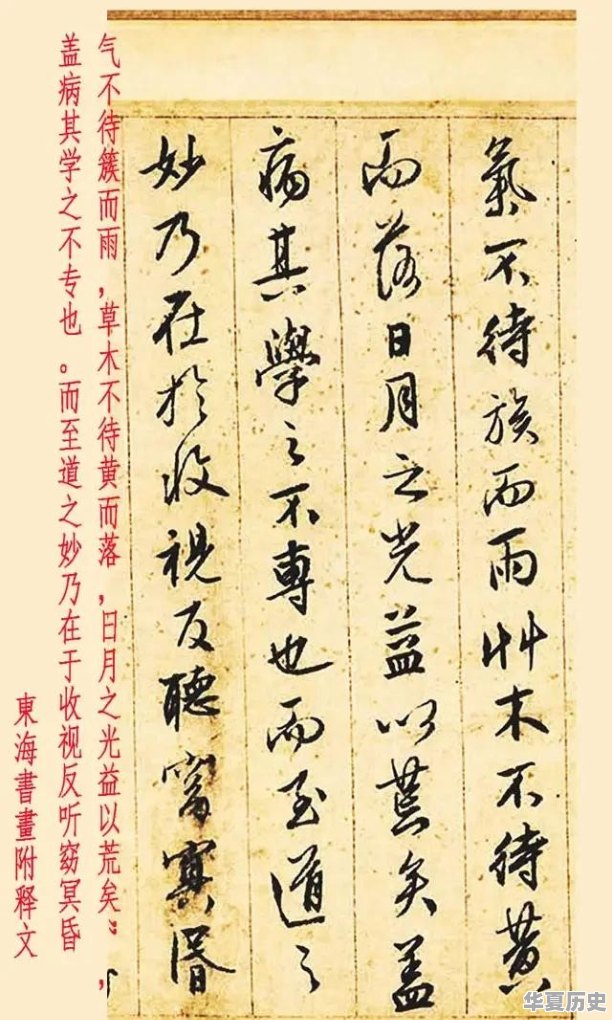 氣不待族而雨艸木不待黄
而落日月之光益以荒矣蓋
病其學之不專也而至道之
妙乃在於收視反聽窈冥昏
气不待簇而雨，草木不待黄而落，日月之光益以荒矣”，
盖病其学之不专也。而至道之妙乃在于收视反听窈冥昏
東海書畫附释文
华夏历史